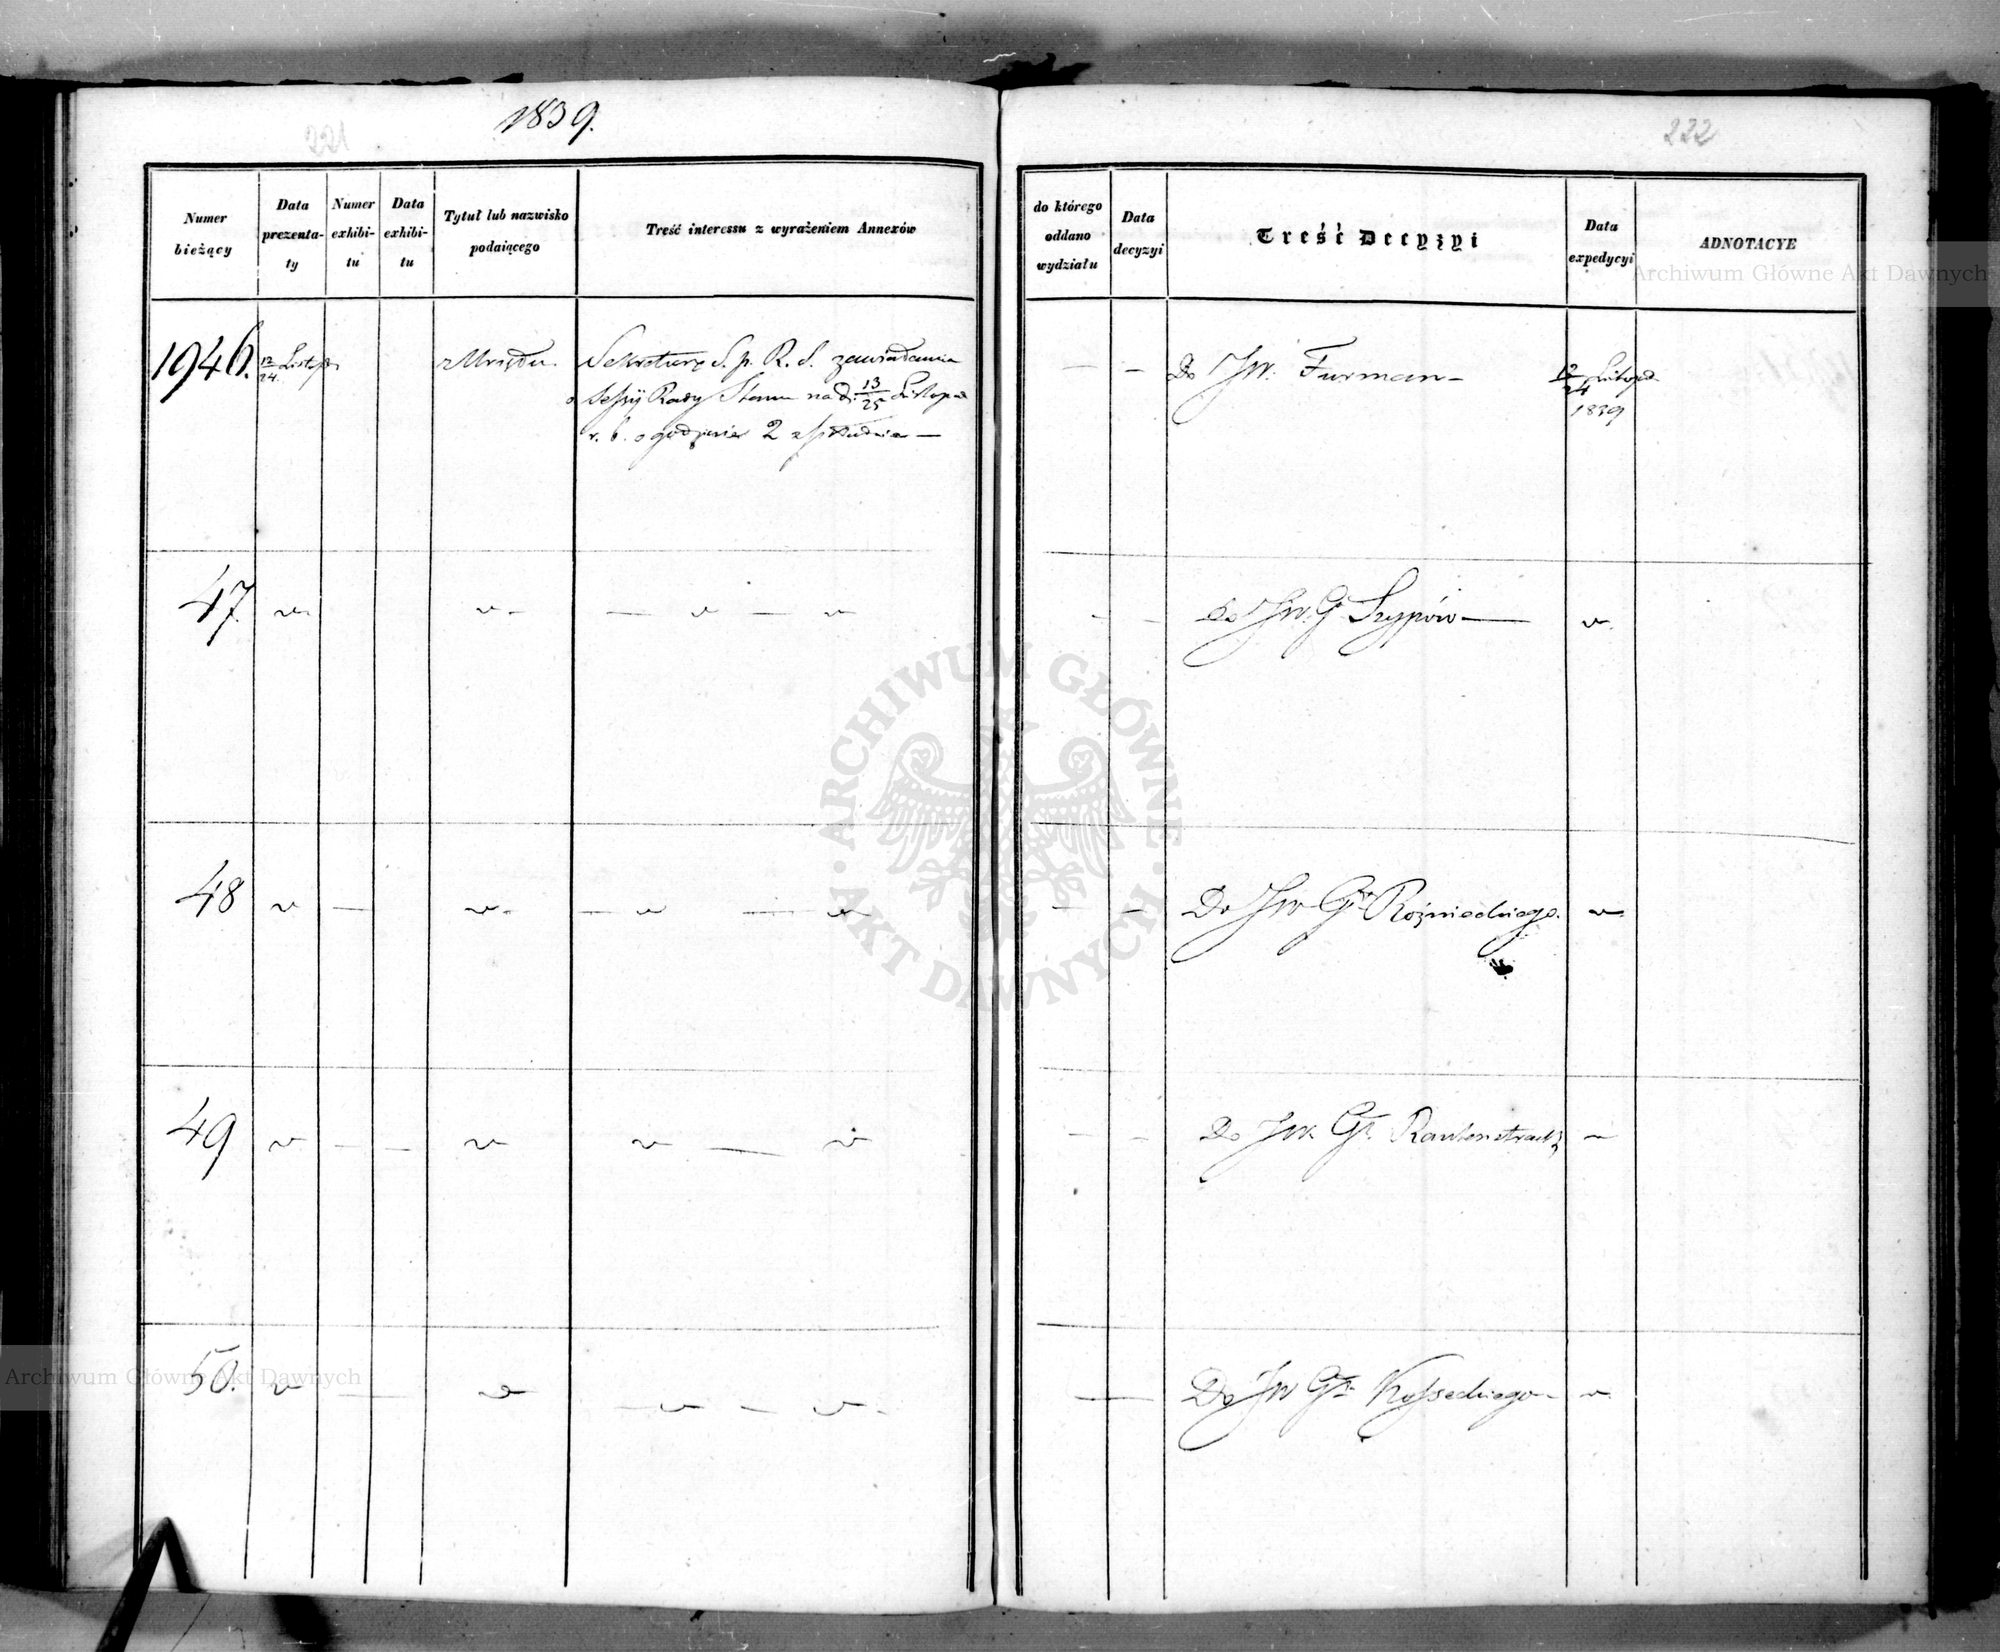 221
1839.
222
Numer bieżący
Data prezenta-ty
Numer exhibi-tu
Data exhibi-tu
Tytuł lub nazwisko podaiącego
Treść interessu z wyrażeniem Annexów
do którego oddano wydziału
Data decyzyi
Treść Decyzyi
Data expedycyi
ADNOTACYE
1946. 12/24. Listop. z Urzędu. Sekretarz S. p. R. S. zawiadamia
o sessyi Rady Stanu na d. 13/25 Listopad
r. b. o godzinie 2 z południa —
— — Do JW. Furman — 12/24 Listopad. 1839
47. v. v. — v — v
- - do JW. Gł. Szypów — v.
48 v — v. — v — v
— — Do JW Gł. Rożnieckiego. v
49 v — — v v — v
- - Do JW. Gł. Rautenstrauch v
50. v — — v — v — v -
— Do JW Gł. Kosseckiego — v.
ARCHIWUM GŁÓWNE AKT DAWNYCH
Archiwum Główne Akt Dawnych
Archiwum Główne Akt Dawnych